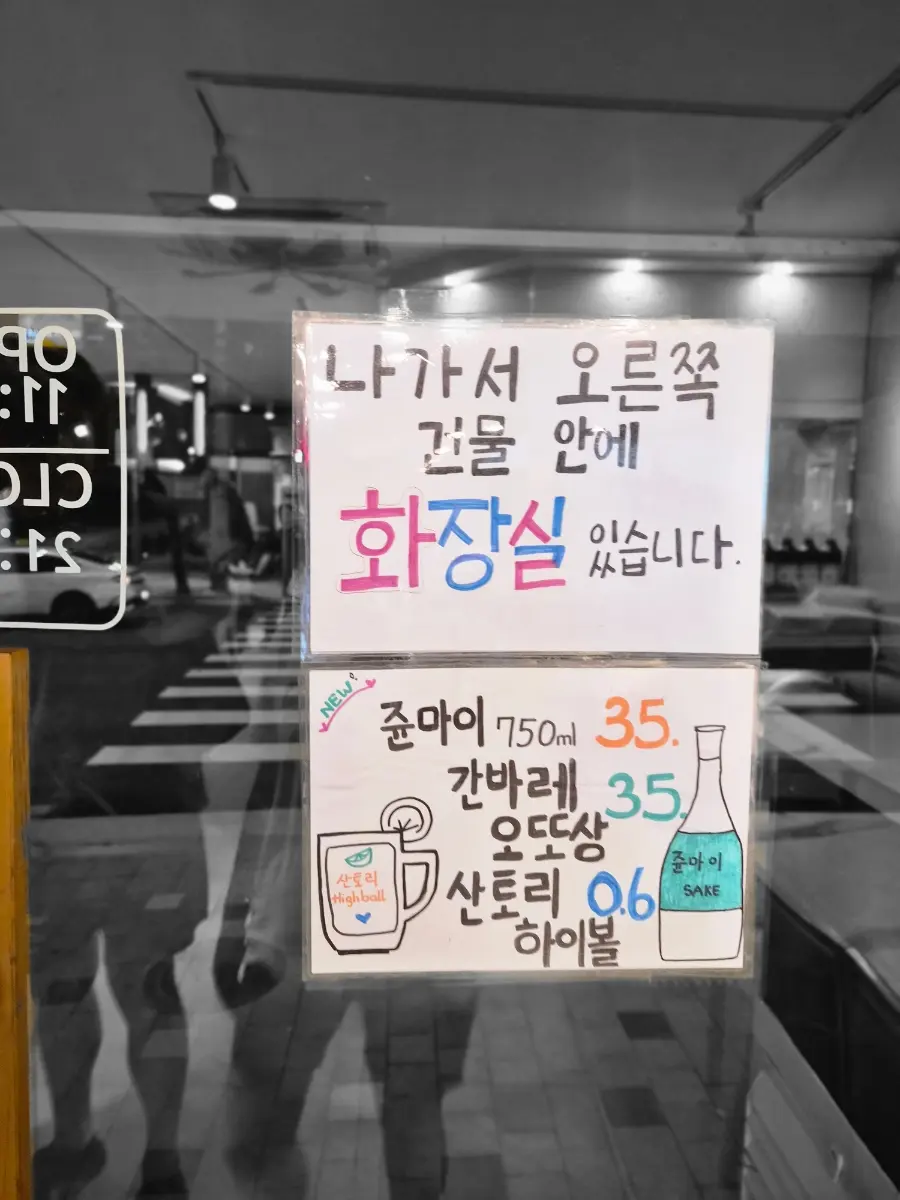 OP
11:
CLO
21:
나가서 오른쪽
건물 안에
화장실 있습니다.
NEW!
쥰마이 750ml 35.
간바레 35.
오또상
산토리 0.6
하이볼
산토리
Highball
쥰마이
SAKE